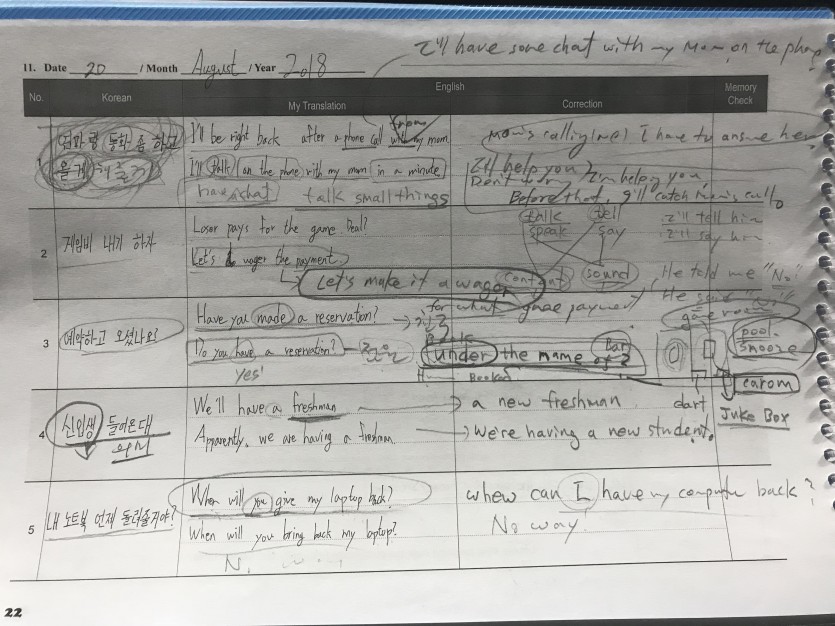 I'll have some chat with my Mom on the phone
11. Date 20 / Month August / Year 2018
No.
Korean
English
My Translation
Correction
Memory Check
1
엄마랑 통화 좀 하고
올게
I'll be right back after a phone call with my mom
I'll talk on the phone with my mom in a minute
have a chat talk small things
Mom's calling (me) I have to answer her
I'll help you I'm helping you
Before that, I'll catch Mom's call
talk tell
speak say
I'll tell him
I'll say him
2
게임비 내기 하자
Loser pays for the game Deal?
Let's wager the payment.
Let's make it a wager
content sound
He told me "No"
He said "No"
for what game payment
3
예약하고 오셨나요?
Have you made a reservation?
Do you have a reservation?
Yes
under the name of 2
Bar
Booked
game room
pool.
snooze
carom
dart
Juke Box
4
신입생 들어온대
We'll have a freshman
a new freshman
Apparently, we are having a freshman
We're having a new student.
5
내 노트북 언제 돌려줄거야?
When will you give my laptop back?
When will you bring back my laptop?
when can I have my computer back?
No way.
22